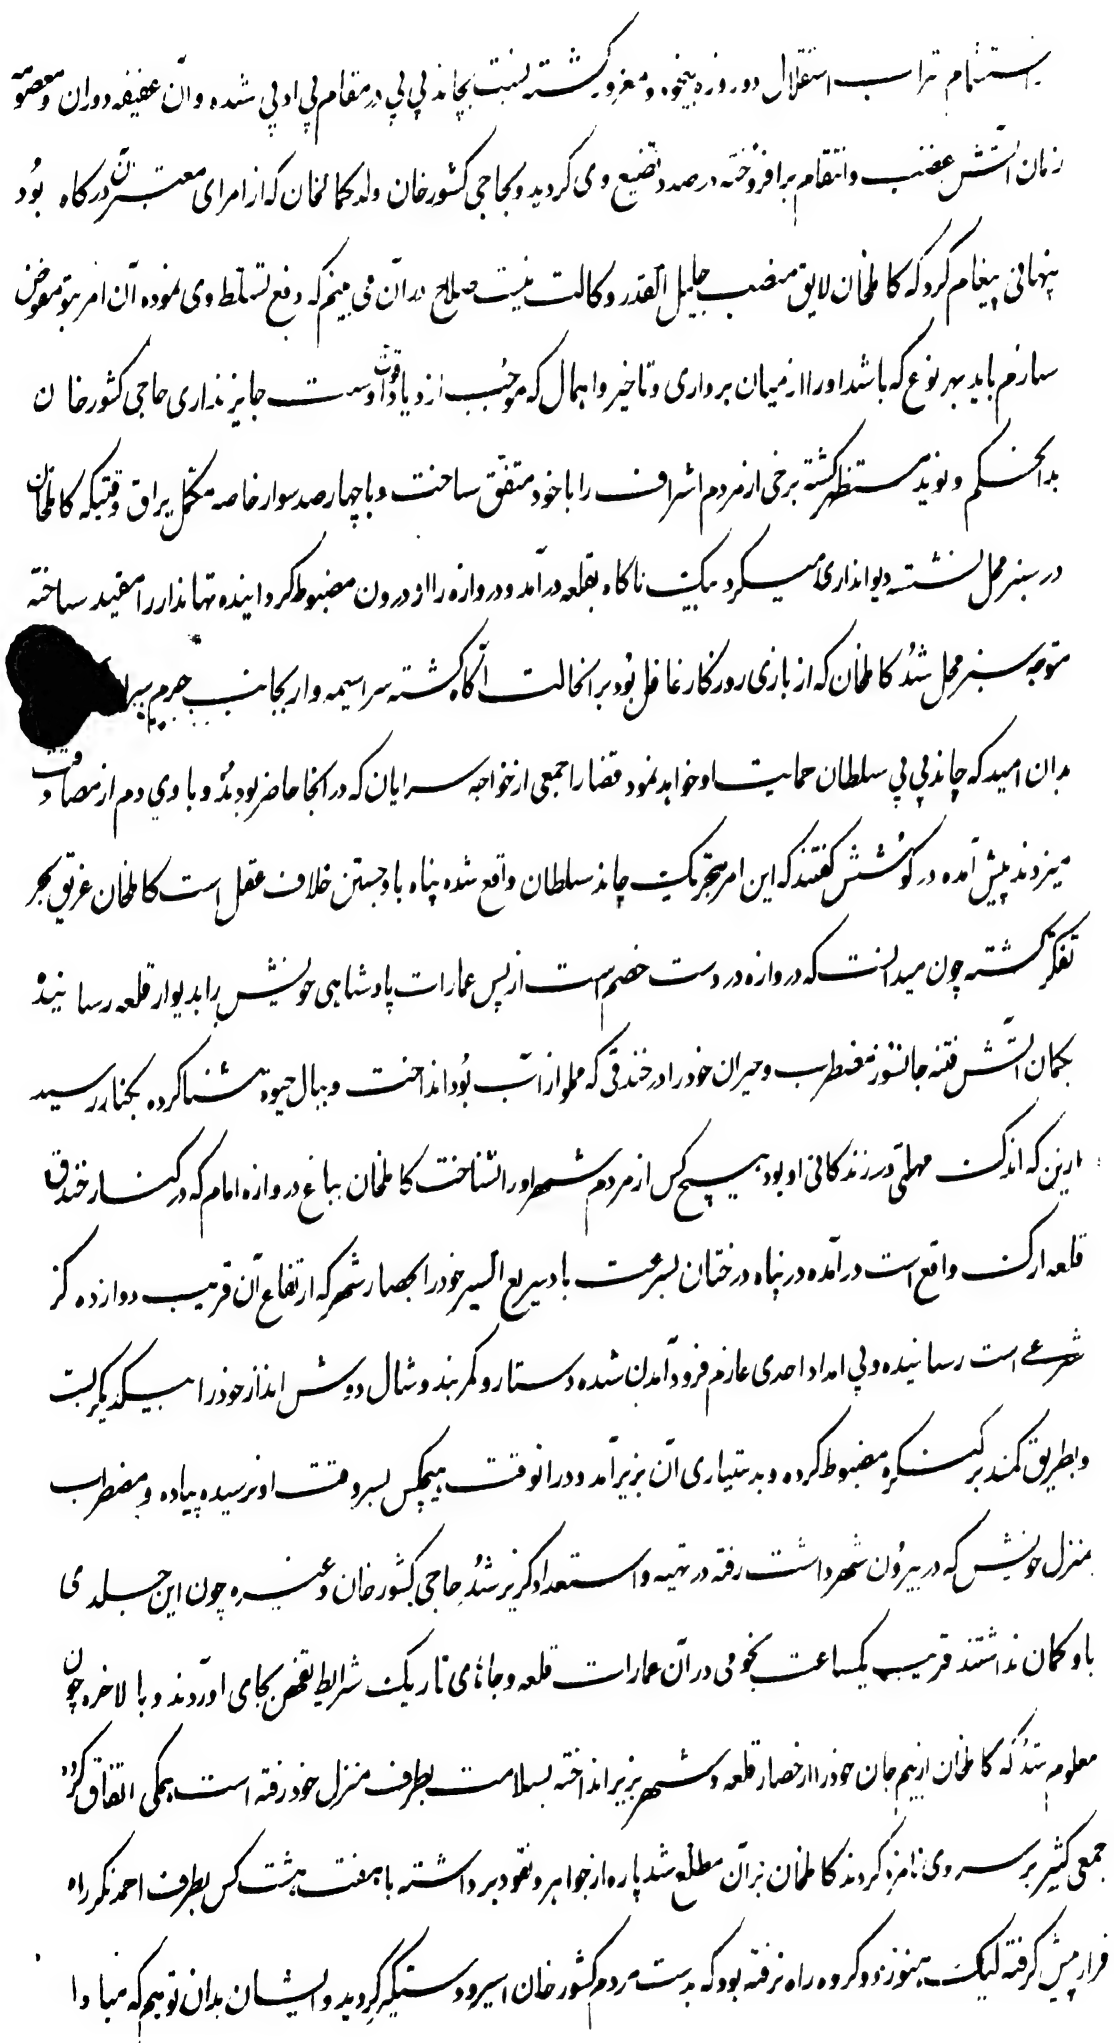 استشمام تراب استقلال دو روزه بیخود و مغرور گشته نسبت بچاند بی بی در مقام بی ادبی شده و آن عفیفه دوران و معصومه
زمان آتش غضب و انتقام برافروخته در صدد تضیع وی گردید و بحاجی کشور خان ولد کمالخان که از امرای معتبر آن درگاه بود
پنهانی پیغام کرد که کاملخان لایق منصب جلیل القدر وکالت نیست صلاح بدان می بینم که دفع تسلط وی نموده آن امر بتو مفوض
سازم باید بهر نوع که باشد او را از میان برداری و تاخیر و اهمال که موجب ازدیاد قوت اوست جایز نداری حاجی کشور خان
بدانحکم و نوید مستظهر گشته برخی از مردم اشراف را با خود متفق ساخت و با چهار صد سوار خاصه مکمل یراق وقتیکه کاملخان
در سبز محل نشسته دیوانداری میکرد بیک ناگاه بقلعه درآمد و دروازه را از درون مضبوط گردانیده تهانه‌دار را مقید ساخته
متوجه سبز محل شد کاملخان که از بازی روزگار غافل بود بر انحالت آگاه گشته سراسیمه وار بجانب حرم سرا
بدان امید که چاند بی بی سلطان حمایت او خواهد نمود قضا را جمعی از خواجه سرایان که در انجا حاضر بودند و با وی دم از مصادقت
میزدند پیش آمده در گوشش گفتند که این امر بتحریک چاند سلطان واقع شده پناه باو جستن خلاف عقل است کاملخان غریق بحر
تفکر گشته چون میدانست که دروازه در دست خصم است از پس عمارات پادشاهی خویش را بدیوار قلعه رسانید
بگمان آتش فتنه جانسوز مضطرب و حیران خود را در خندقی که مملو از آب بود انداخت و ببال حیوة شنا کرده بکنار رسید
ازین که اندک مهلتی در زندگانی او بود هیچ کس از مردم شهر او را نشناخت کاملخان بباغ دروازه امام که در کنار خندق
قلعه ارک واقع است درآمده در پناه درختان بسرعت باد سریع السیر خود را بحصار شهر که ارتفاع آن قریب دوازده گز
شرعی است رسانیده و بی امداد احدی عازم فرود آمدن شده دستار و کمربند و شال دوش انداز خود را بیکدیگر بست
و بطریق کمند بر کنگره مضبوط کرده و بدستیاری آن بزیر آمد و در انوقت هیچکس بسر وقت او نرسیده پیاده و مضطرب
بمنزل خویش که در بیرون شهر داشت رفته در تهیه و استعداد گریز شد حاجی کشور خان و غیره چون این جلدی
باو گمان نداشتند قریب یکساعت نجومی در آن عمارات قلعه و جاهای تاریک شرایط تفحص بجای آوردند و بالاخره چون
معلوم شد که کاملخان از بیم جان خود را از حصار قلعه و شهر بزیر انداخته بسلامت بطرف منزل خود رفته است همگی اتفاق کرده
جمعی کثیر بر سر وی نامزد کردند کاملخان بر آن مطلع شد پاره از جواهر و نقود برداشته با هفت هشت کس بطرف احمد نگر راه
فرار پیش گرفته لیک هنوز دو کروه راه نرفته بود که بدست مردم کشور خان اسیر و دستگیر گردید و ایشان بدان توهم که مبادا